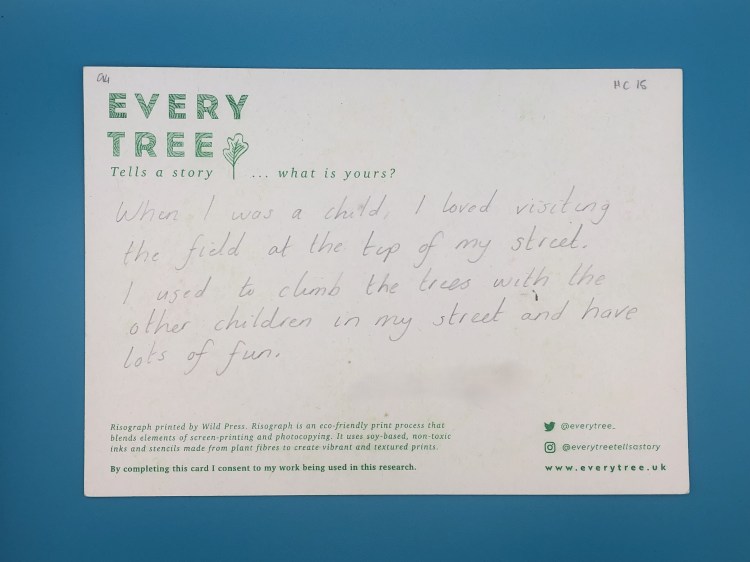 94
HC 15
EVERY
TREE
Tells a story ... what is yours?
When I was a child, I loved visiting
the field at the top of my street.
I used to climb the trees with the
other children in my street and have
lots of fun.
Risograph printed by Wild Press. Risograph is an eco-friendly print process that
blends elements of screen-printing and photocopying. It uses soy-based, non-toxic
inks and stencils made from plant fibres to create vibrant and textured prints.
By completing this card I consent to my work being used in this research.
@everytree_
@everytreetellsastory
www.everytree.uk